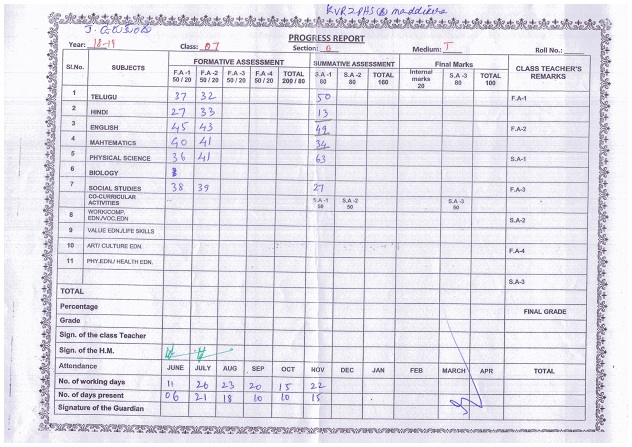 RVRZPHS(B) maddikera
PROGRESS REPORT
Year: 18-19 Class: 07 Section: Medium: T Roll No.:
Sl.No. SUBJECTS FORMATIVE ASSESSMENT SUMMATIVE ASSESSMENT Final Marks CLASS TEACHER'S REMARKS
F.A -1 50 / 20 F.A -2 50 / 20 F.A -3 50 / 20 F.A -4 50 / 20 TOTAL 200 / 80 S.A -1 80 S.A -2 80 TOTAL 160 Internal marks 20 S.A -3 80 TOTAL 100
1 TELUGU 37 32 50 F.A-1
2 HINDI 27 33 13
3 ENGLISH 45 43 49 F.A-2
4 MAHTEMATICS 40 41 34
5 PHYSICAL SCIENCE 36 41 63 S.A-1
6 BIOLOGY
7 SOCIAL STUDIES 38 39 27 F.A-3
CO-CURRICULAR ACTIVITIES S.A -1 50 S.A -2 50 S.A -3 50
8 WORK/COMP. EDN./VOC.EDN S.A-2
9 VALUE EDN./LIFE SKILLS
10 ART/ CULTURE EDN. F.A-4
11 PHY.EDN./ HEALTH EDN.
S.A-3
TOTAL
Percentage FINAL GRADE
Grade
Sign. of the class Teacher
Sign. of the H.M.
Attendance JUNE JULY AUG SEP OCT NOV DEC JAN FEB MARCH APR TOTAL
No. of working days 11 26 23 20 15 22
No. of days present 06 21 18 10 10 15
Signature of the Guardian